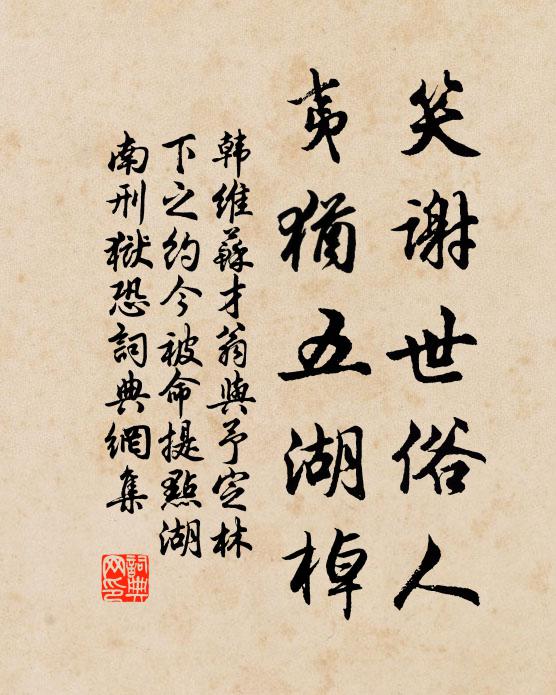 笑謝世俗人
夷猶五湖棹
韩維蘇才翁與予定林
下之約今被命提點湖
南刑獄恐詞典網集
詞典
网印